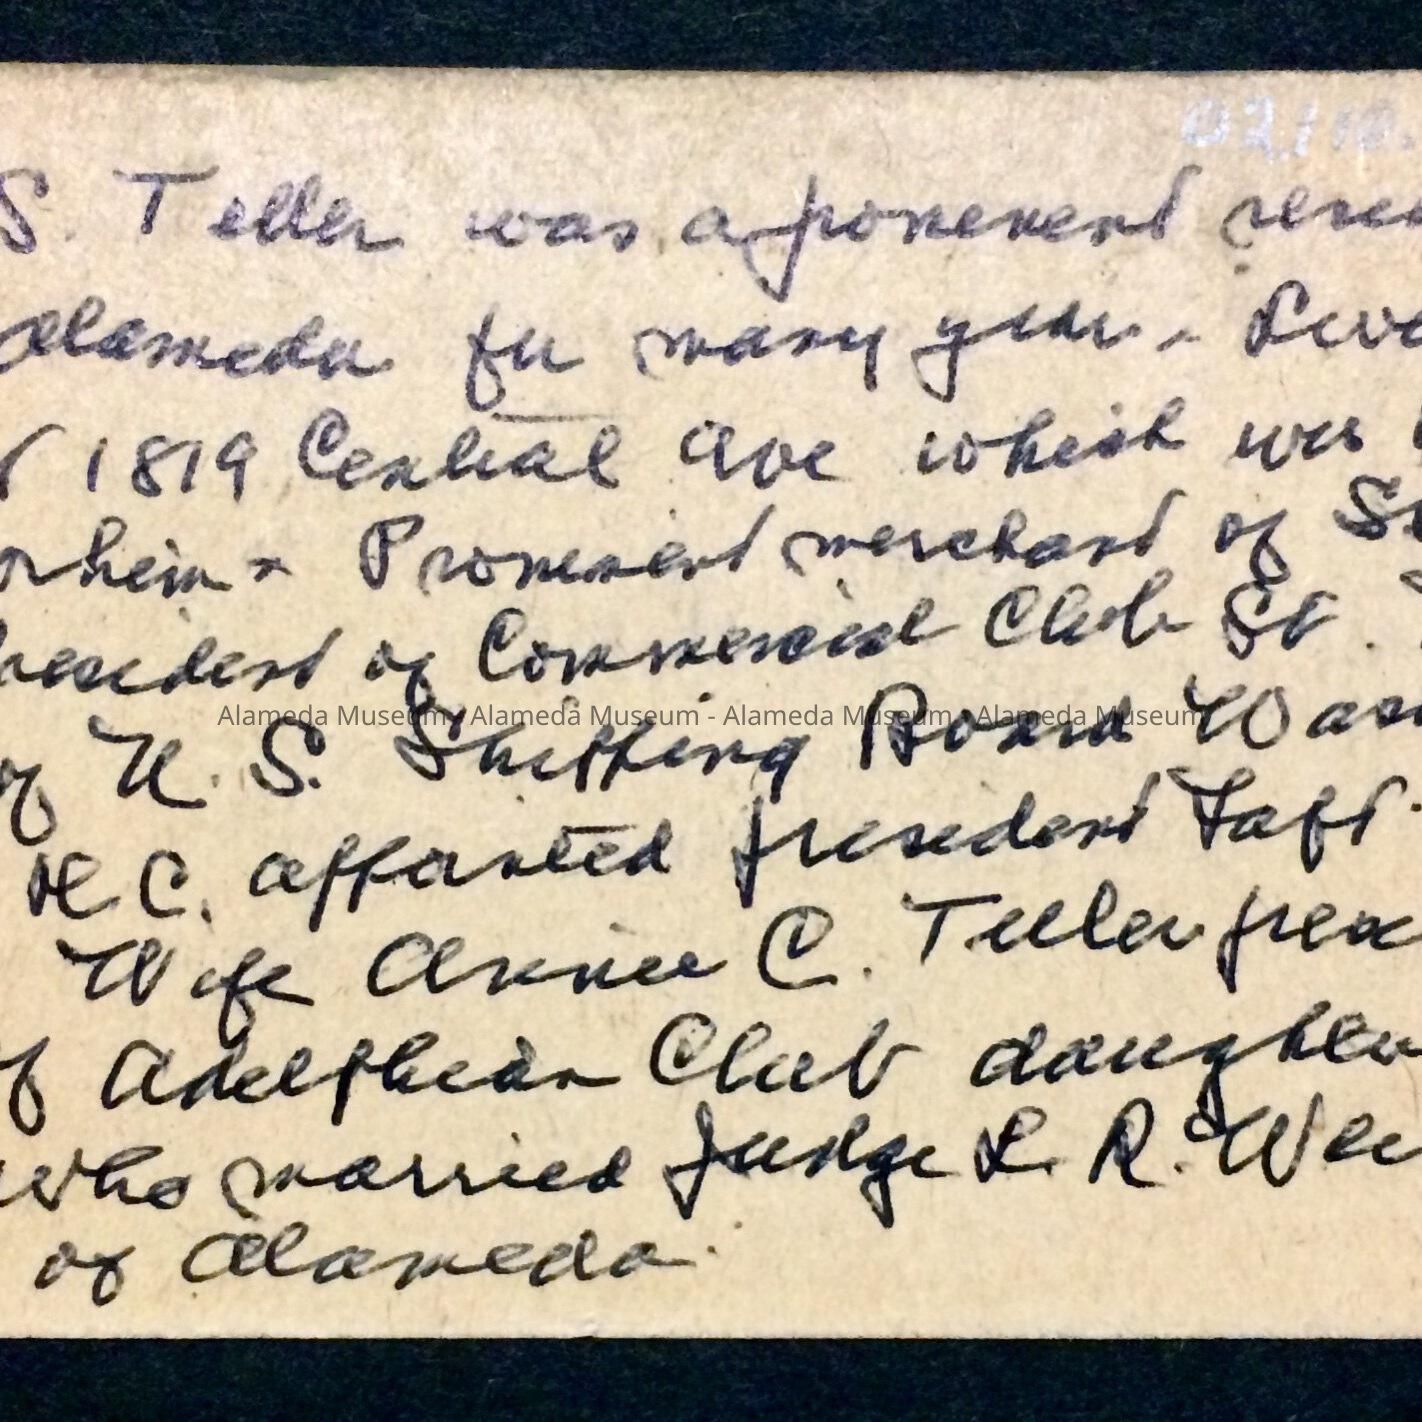 S. Teller was a ponenent
Alameda for many years. Live
1819 Central Ave which was
Prominent merchant of
President of Commercial Club
Alameda Museum - Alameda Museum - Alameda Museum - Alameda Museum
of U. S. Shipping Board Was
appointed president Taft.
Wife Annie C. Teller
of Adelphian Club daughter
who married Judge L. R. We
of Alameda.